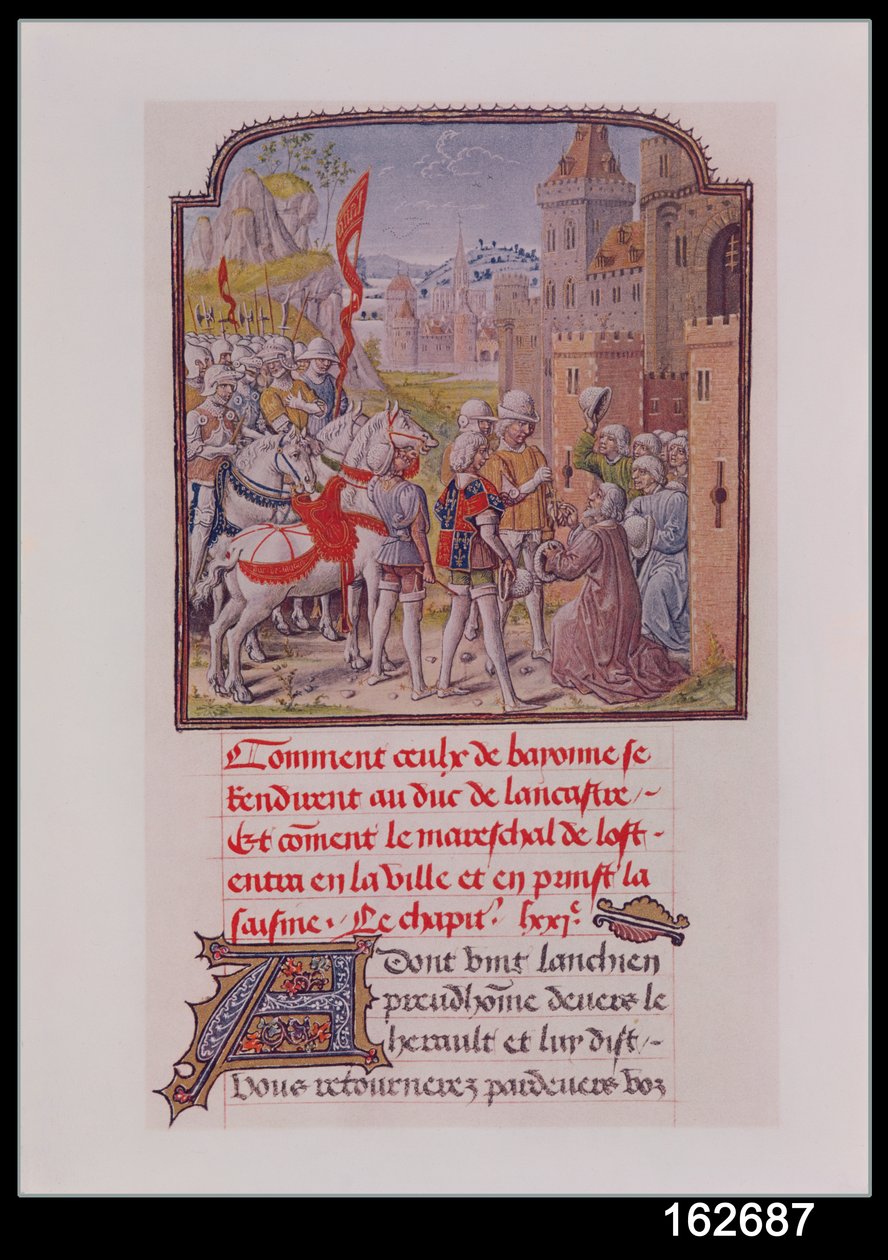 Comment ceulx de bayonne se
Rendirent au duc de lancastre
Et cōment le mareschal de lost
entra en la ville et en prinst la
saisine. Le chapit.ͬ lxxj.ͤ
Adont vint lanchien
preudhōme devers le
herault et luy dist
Vous retournerez pardevers voz
162687